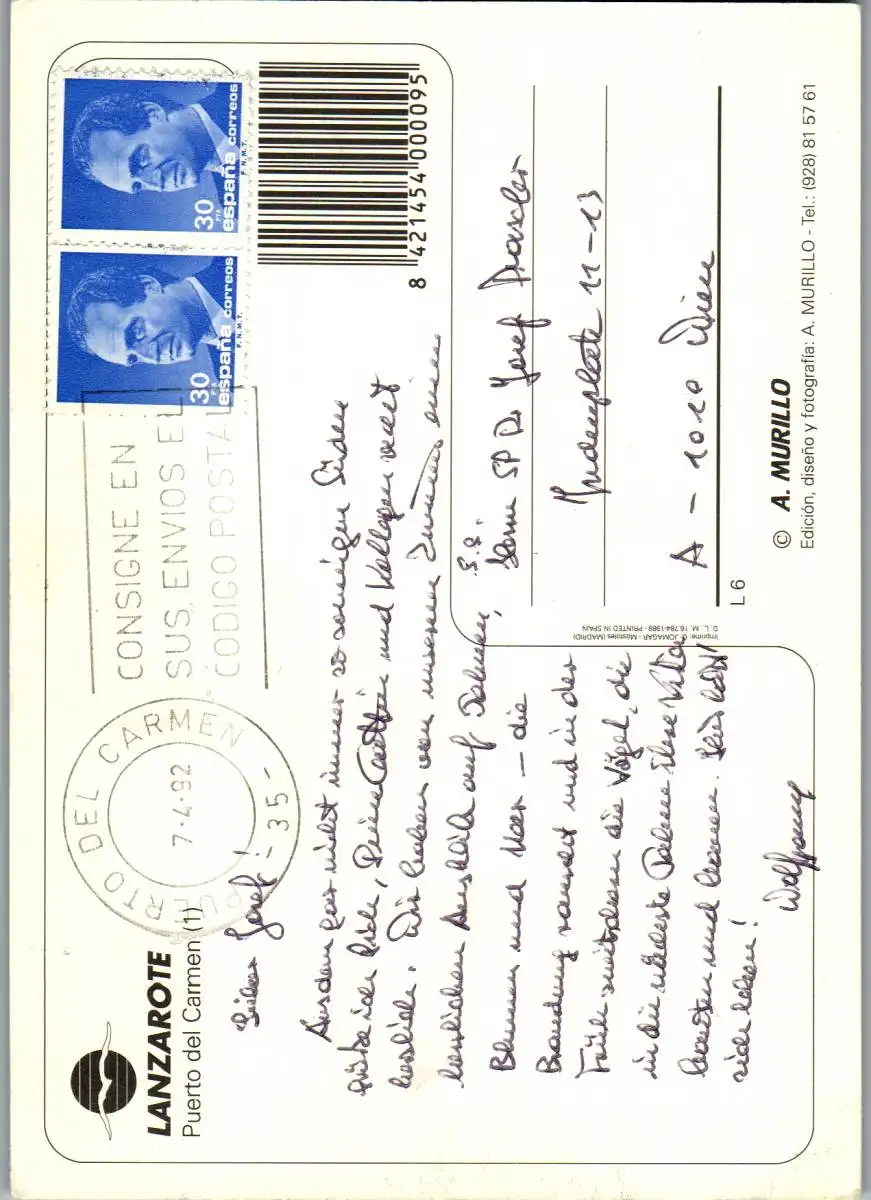 LANZAROTE
Puerto del Carmen (1)
PUERTO DEL CARMEN
7·4·92
- 35 -
CONSIGNE EN
SUS ENVIOS EL
CODIGO POSTAL
30
PTA
españa correos
F.N.M.T.
30
PTA
españa correos
F.N.M.T.
8 421454 000095
Lieber Josef!
Aus dem gar nicht immer so sonnigen Süden
grüße ich Dich, und Kollegen recht
herzlich. Wir haben von unserem Zimmer einen
herrlichen Ausblick auf Palmen,
Blumen und Meer – die
Brandung rauscht und in der
Früh zwitschern die Vögel, die
in die nächste Palme ihre
und kommen.
sich leben!
Wolfgang
Herrn SP Dr Josef Draxler
11-13
A - 1010 Wien
L 6
Imprime: G. JOMAGAR - Móstoles (MADRID)
D. L.: M. 16.784-1989 - PRINTED IN SPAIN
© A. MURILLO
Edición, diseño y fotografía: A. MURILLO - Tel.: (928) 81 57 61